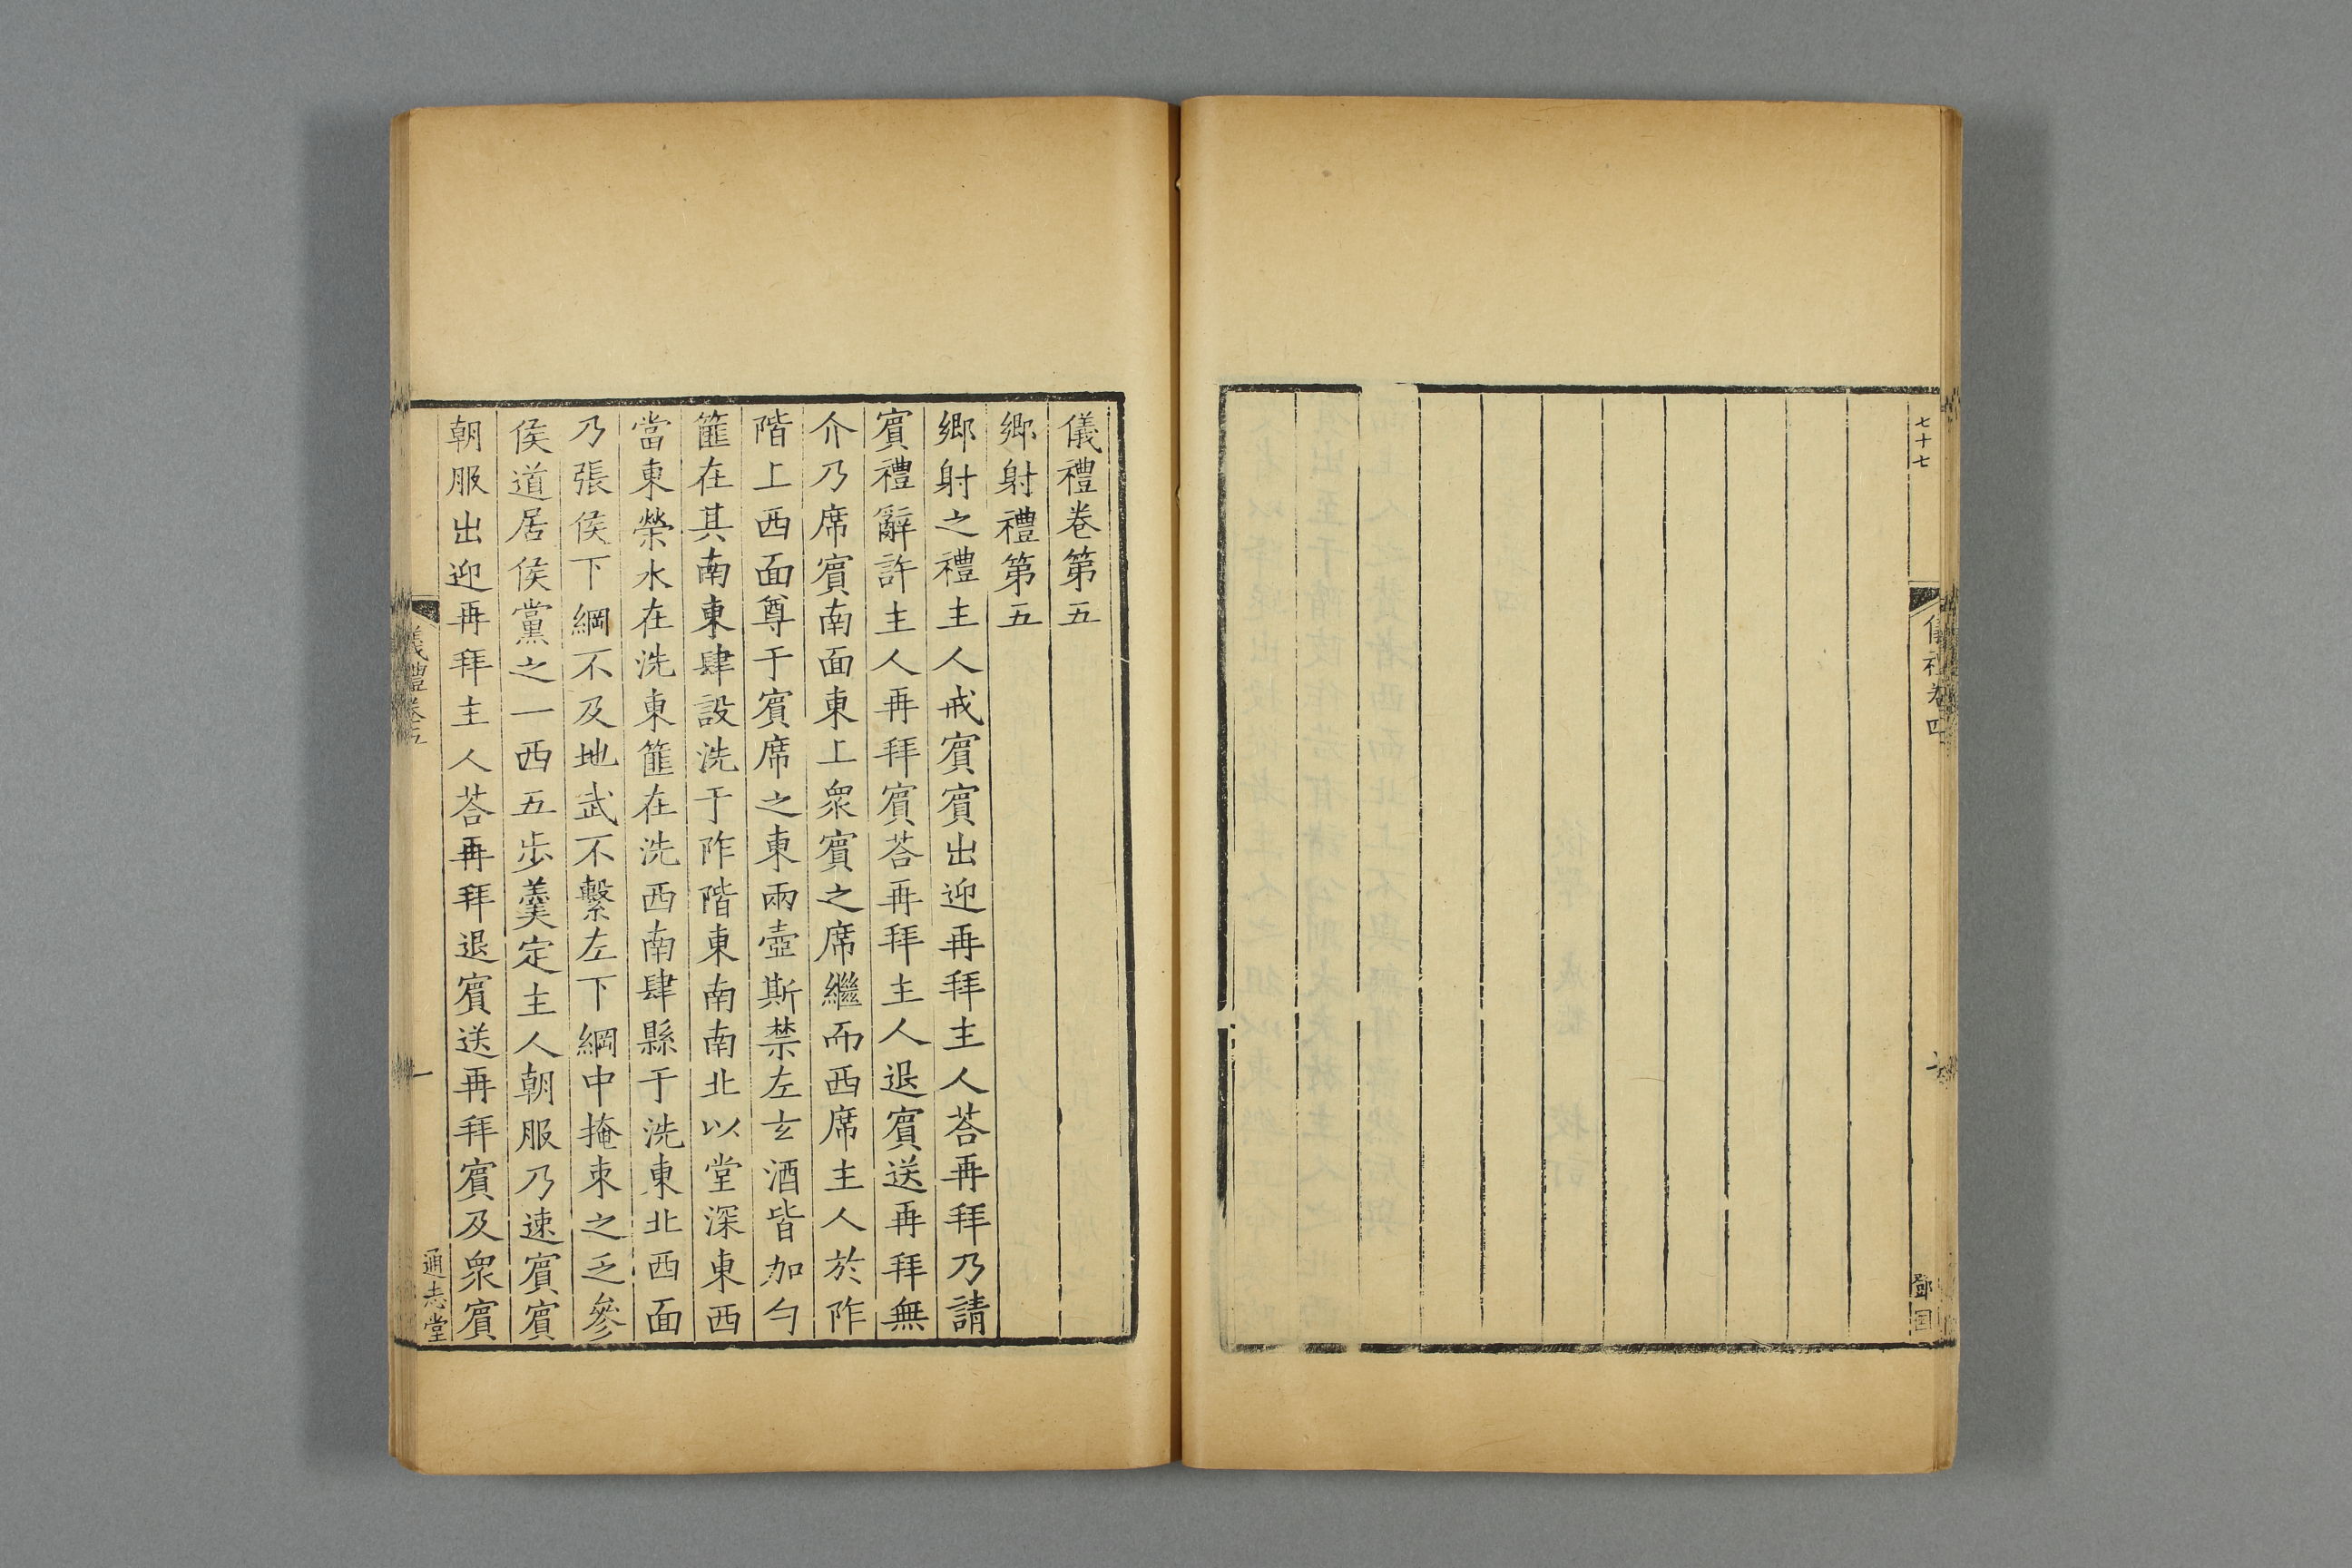 七十七
儀禮卷四
鄧国
儀禮卷第五
鄉射禮第五
鄉射之禮主人戒賓賓出迎再拜主人荅再拜乃請
賓禮辭許主人再拜賓荅再拜主人退賓送再拜無
介乃席賓南面東上衆賓之席繼而西席主人於阼
階上西面尊于賓席之東兩壺斯禁左玄酒皆加勺
篚在其南東肆設洗于阼階東南南北以堂深東西
當東榮水在洗東篚在洗西南肆縣于洗東北西面
乃張侯下綱不及地武不繫左下綱中掩束之乏參
侯道居侯黨之一西五步羹定主人朝服乃速賓賓
朝服出迎再拜主人荅再拜退賓送再拜賓及衆賓
儀禮卷五
一
通志堂